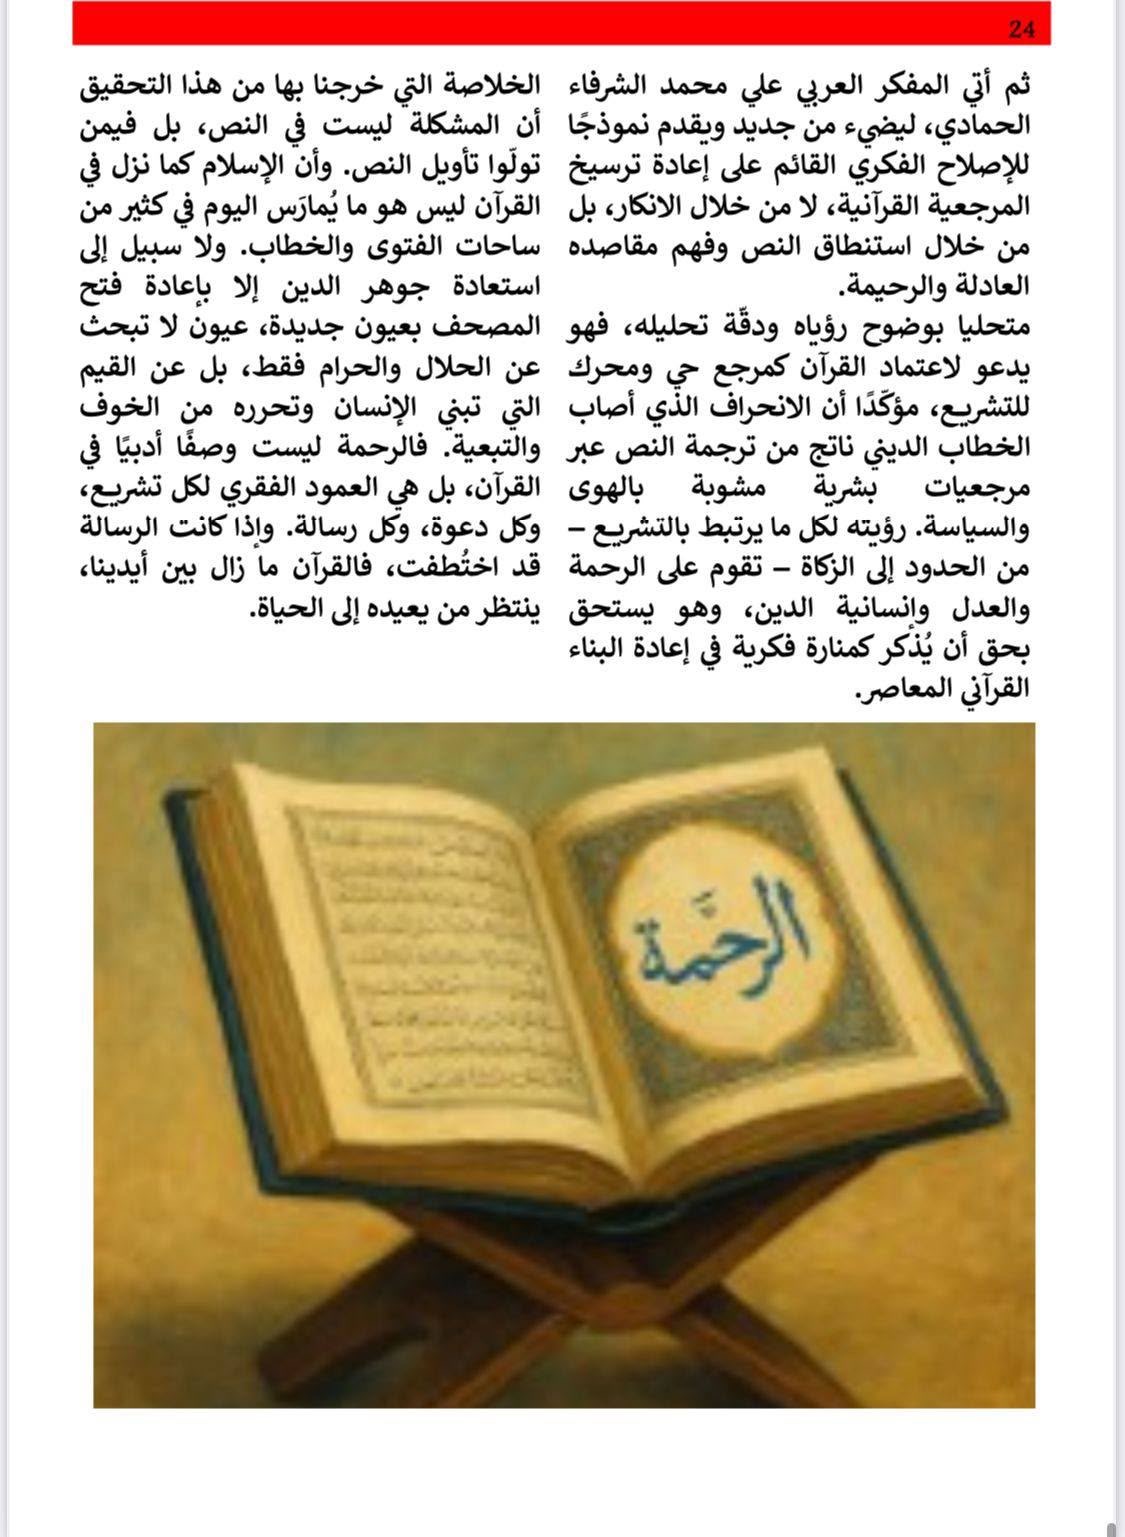 24
ثم أتي المفكر العربي علي محمد الشرفاء
الحمادي، ليضيء من جديد ويقدم نموذجًا
للإصلاح الفكري القائم على إعادة ترسيخ
المرجعية القرآنية، لا من خلال الانكار، بل
من خلال استنطاق النص وفهم مقاصده
العادلة والرحيمة.
متحليا بوضوح رؤياه ودقّة تحليله، فهو
يدعو لاعتماد القرآن كمرجع حي ومحرك
للتشريع، مؤكّدًا أن الانحراف الذي أصاب
الخطاب الديني ناتج من ترجمة النص عبر
مرجعيات بشرية مشوبة بالهوى
والسياسة. رؤيته لكل ما يرتبط بالتشريع –
من الحدود إلى الزكاة – تقوم على الرحمة
والعدل وإنسانية الدين، وهو يستحق
بحق أن يُذكر كمنارة فكرية في إعادة البناء
القرآني المعاصر.
الخلاصة التي خرجنا بها من هذا التحقيق
أن المشكلة ليست في النص، بل فيمن
تولّوا تأويل النص. وأن الإسلام كما نزل في
القرآن ليس هو ما يُمارَس اليوم في كثير من
ساحات الفتوى والخطاب. ولا سبيل إلى
استعادة جوهر الدين إلا بإعادة فتح
المصحف بعيون جديدة، عيون لا تبحث
عن الحلال والحرام فقط، بل عن القيم
التي تبني الإنسان وتحرره من الخوف
والتبعية. فالرحمة ليست وصفًا أدبيًا في
القرآن، بل هي العمود الفقري لكل تشريع،
وكل دعوة، وكل رسالة. وإذا كانت الرسالة
قد اختُطفت، فالقرآن ما زال بين أيدينا،
ينتظر من يعيده إلى الحياة.
الرحَمة